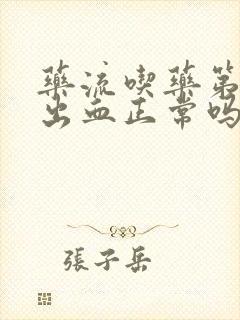 藥流喫藥第
出血正常嗎
張子岳